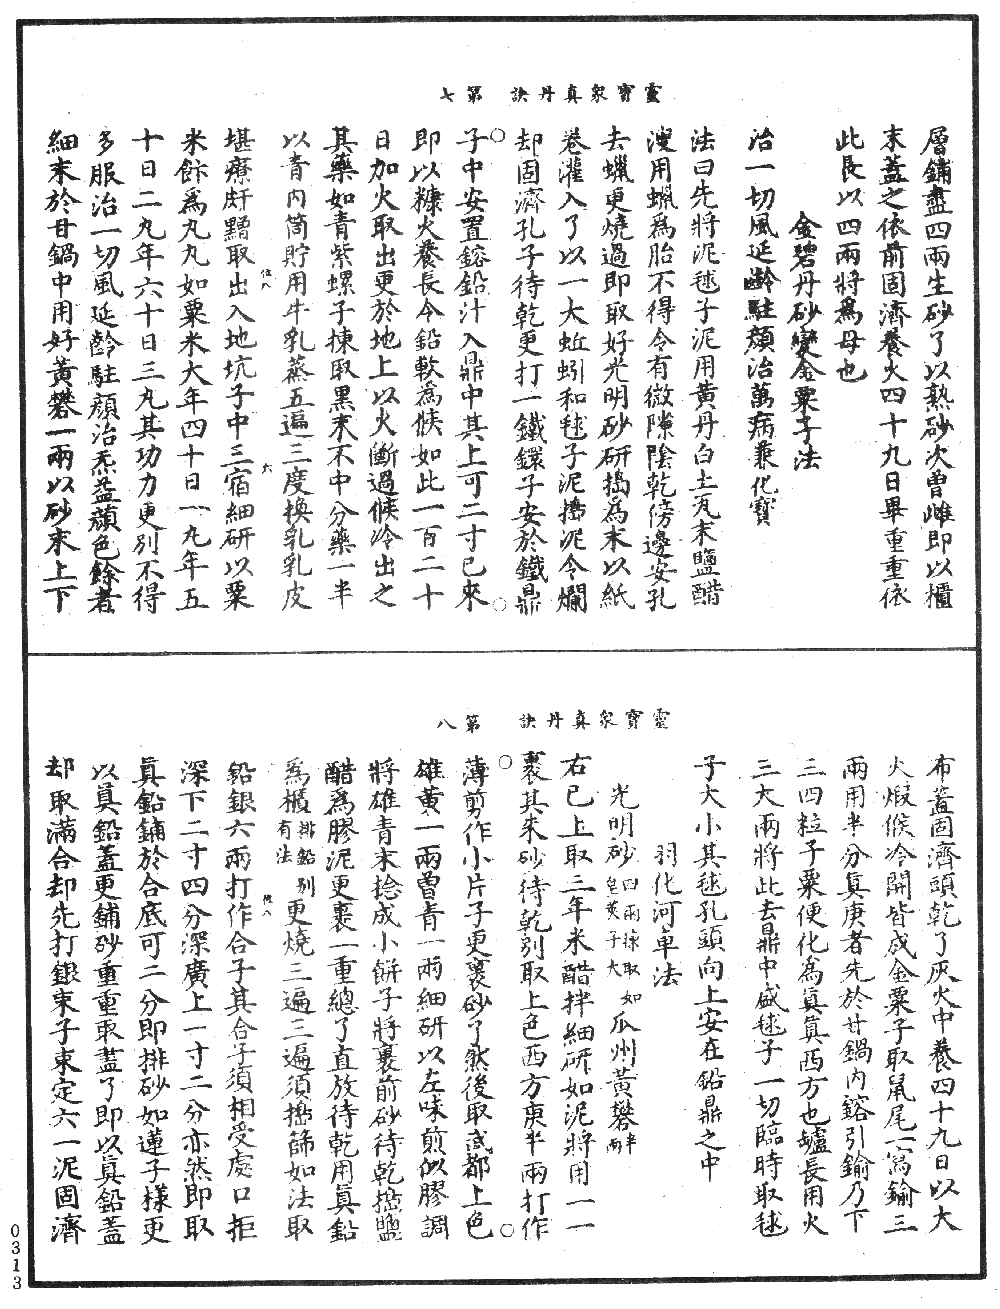 靈寶衆真丹訣　第七
層鋪盡四兩生砂了以熟砂次曾雌即以櫃
末蓋之依前固濟養火四十九日畢重重依
此長以四兩將爲母也
金碧丹砂變金粟子法
治一切風延齡駐顔治萬病兼化寶
法曰先將泥毬子泥用黃丹白土瓦末鹽醋
溲用蠟爲胎不得令有微隙陰乾傍邊安孔
去蠟更燒過即取好光明砂研擣為末以紙
卷灌入了以一大蚯蚓和毬子泥擣泥令爛
却固濟孔子待乾更打一鐵鐶子安於鐵鼎
子中安置鎔鉛汁入鼎中其上可二寸已來
即以糠火養長令鉛軟爲候如此一百二十
日加火取出更於地上以火斷過候冷出之
其藥如青紫螺子揀取黑末不中分藥一半
以青內筒貯用牛乳蒸五遍三度換乳乳皮
堪療皯黯取出入地坑子中三宿細研以粟
米飯爲丸丸如粟米大年四十日一丸年五
十日二丸年六十日三丸其功力更別不得
多服治一切風延齡駐顔治炁益顔色餘者
細末於甘鍋中用好黃礬一兩以砂末上下
靈寶衆真丹訣　第八
布蓋固濟頭乾了灰火中養四十九日以大
火煅候冷開皆成金粟子取鼠尾一寫鍮三
兩用半分真庚者先於甘鍋內鎔引鍮乃下
三四粒子粟便化為真真西方也爐長用火
三大兩將此去鼎中盛毬子一切臨時取毬
子大小其毬孔頭向上安在鉛鼎之中
羽化河車法
光明砂四兩揀取如皂莢子大瓜州黃礬半兩
右已上取三年米醋拌細研如泥將用一一
裹其朱砂待乾別取上色西方庚半兩打作
薄剪作小片子更裹砂了然後取武都上色
雄黃一兩曾青一兩細研以左味煎似膠調
將雄青末捻成小餅子將裹前砂待乾擣鹽
醋爲膠泥更裹一重總了直放待乾用真鉛
為櫃排鉛別有法更燒三遍三遍須擣篩如法取
鉛銀六兩打作合子其合子須相受處口拒
深下二寸四分深廣上一寸二分亦然即取
真鉛鋪於合底可二分即排砂如蓮子樣更
以真鉛蓋更鋪砂重重取蓋了即以真鉛蓋
却取滿合却先打銀束子束定六一泥固濟
0313